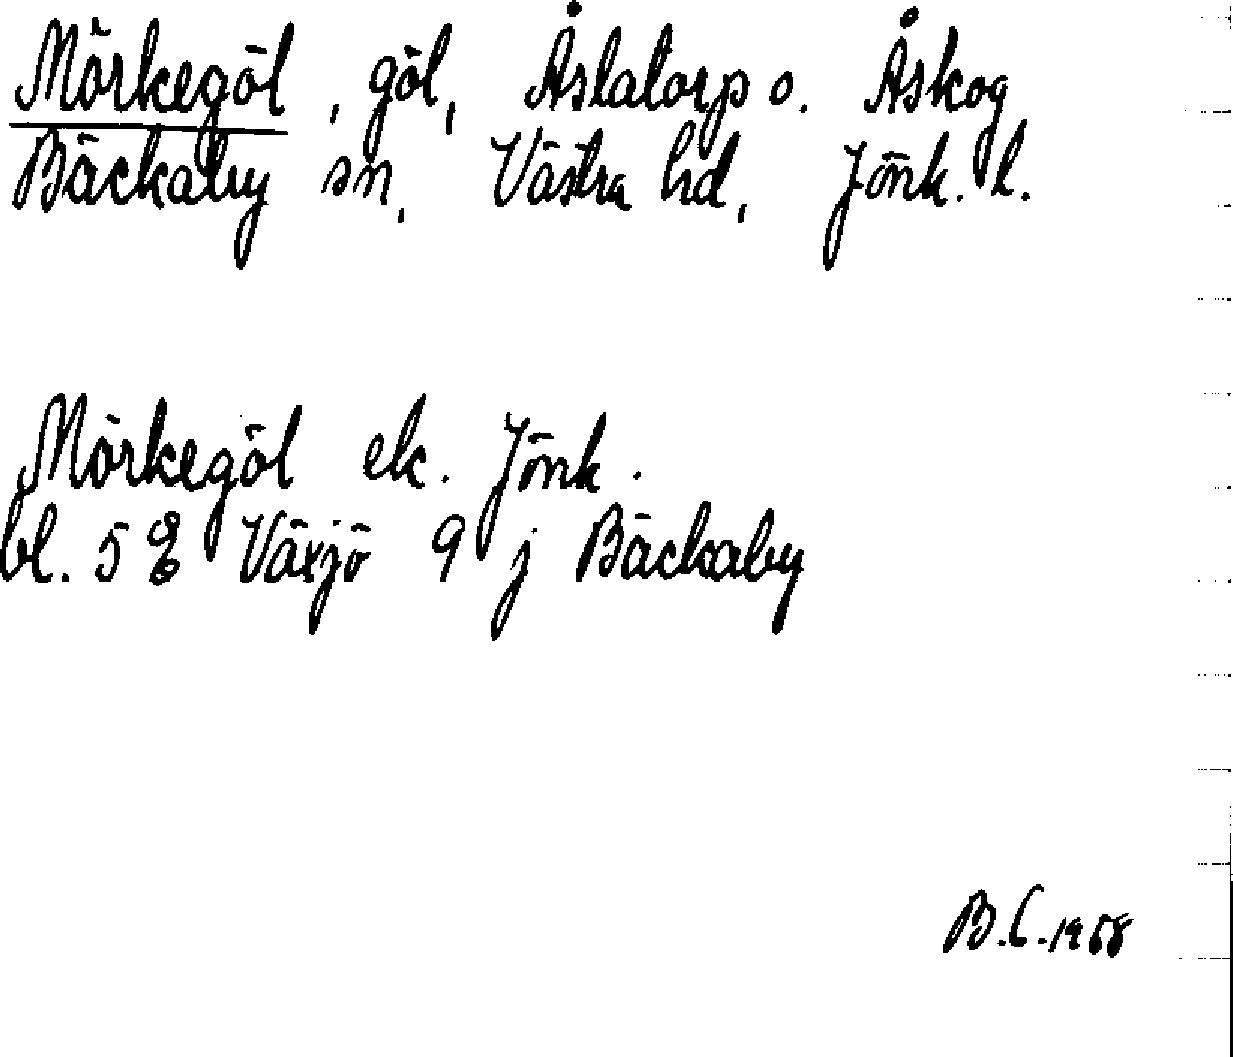 Mörkegöl, göl, Åslatorp o. Åskog
Bäckaby sn, Västra hd, Jönk. l.
Mörkegöl ek. Jönk.
bl. 5 E Växjö 9 j Bäckaby
B.C. 1958